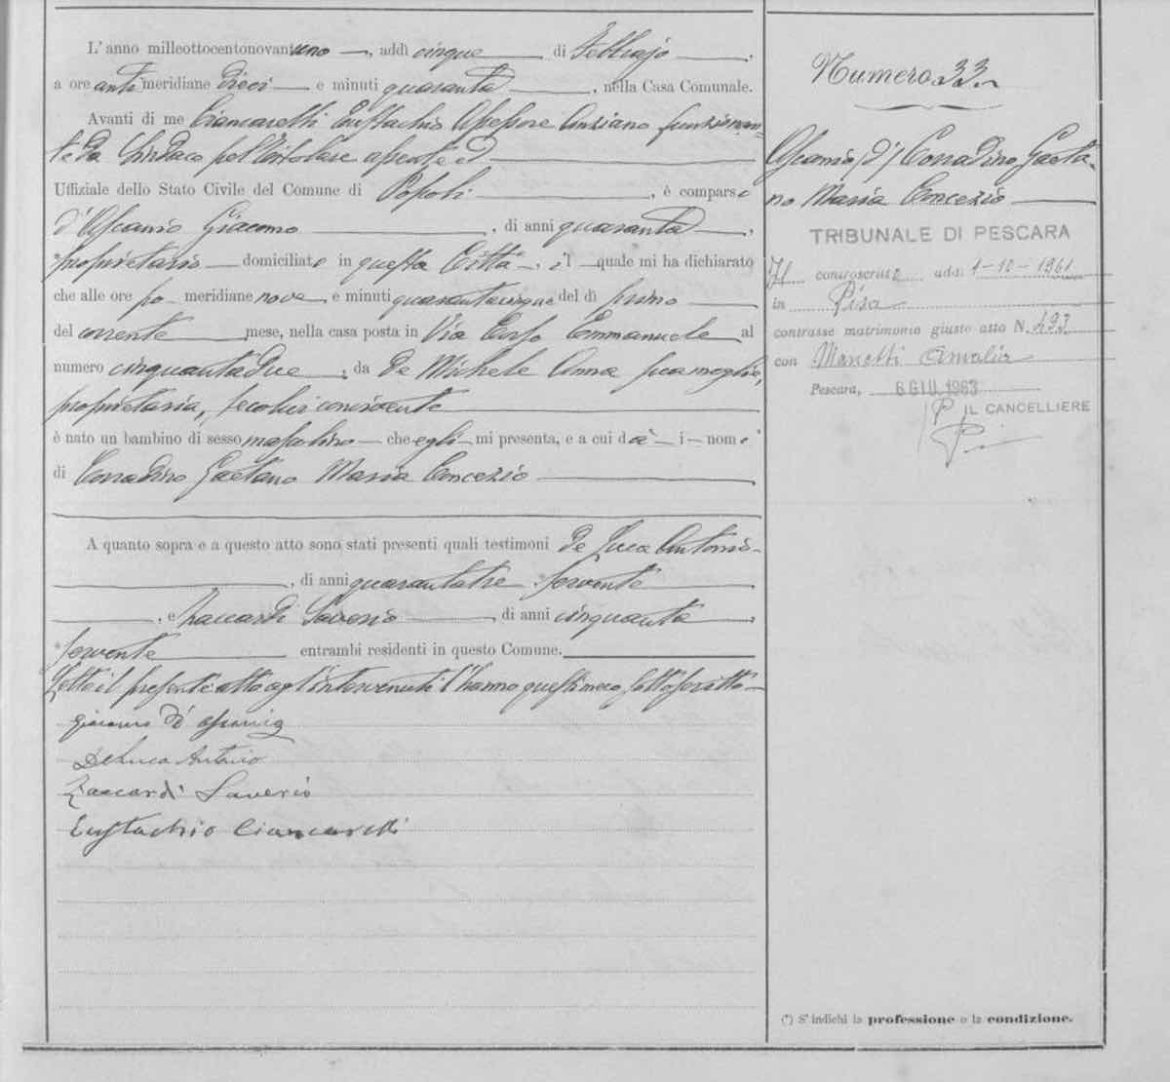 L'anno milleottocentonovantuno, addì cinque di Febbrajo,
a ore antimeridiane dieci e minuti quaranta, nella Casa Comunale.
Avanti di me Ciancarelli Eustachio Assessore Anziano funzionan-
te da Sindaco pel titolare assente ed
Uffiziale dello Stato Civile del Comune di Popoli, è comparso
d'Ascanio Giacomo, di anni quaranta,
proprietario domiciliato in questa Città, il quale mi ha dichiarato
che alle ore po meridiane nove e minuti quarantacinque del dì primo
del corrente mese, nella casa posta in Via Corso Emmanuele al
numero cinquantadue, da De Michele Anna sua moglie,
proprietaria, seco lui convivente
è nato un bambino di sesso mascolino che egli mi presenta, e a cui dà i nomi
di Corradino Gaetano Maria Concezio
A quanto sopra e a questo atto sono stati presenti quali testimoni de Luca Antonio
, di anni quarantatre, servente
, e Zaccardi Saverio, di anni cinquanta,
servente entrambi residenti in questo Comune.
Letto il presente atto agl'intervenuti l'hanno questi meco sottoscritto
Giacomo d'Ascanio
DeLuca Antonio
Zaccardi Saverio
Eustachio Ciancarelli
Numero 33
Ascanio (d') Corradino Gaeta-
no Maria Concezio
TRIBUNALE DI PESCARA
Il controscritto addì 1-10-1961
in Pisa
contrasse matrimonio giusto atto N. 493
con Amalia
Pescara, 6 GIU. 1963
IL CANCELLIERE
(*) S'indichi la professione o la condizione.